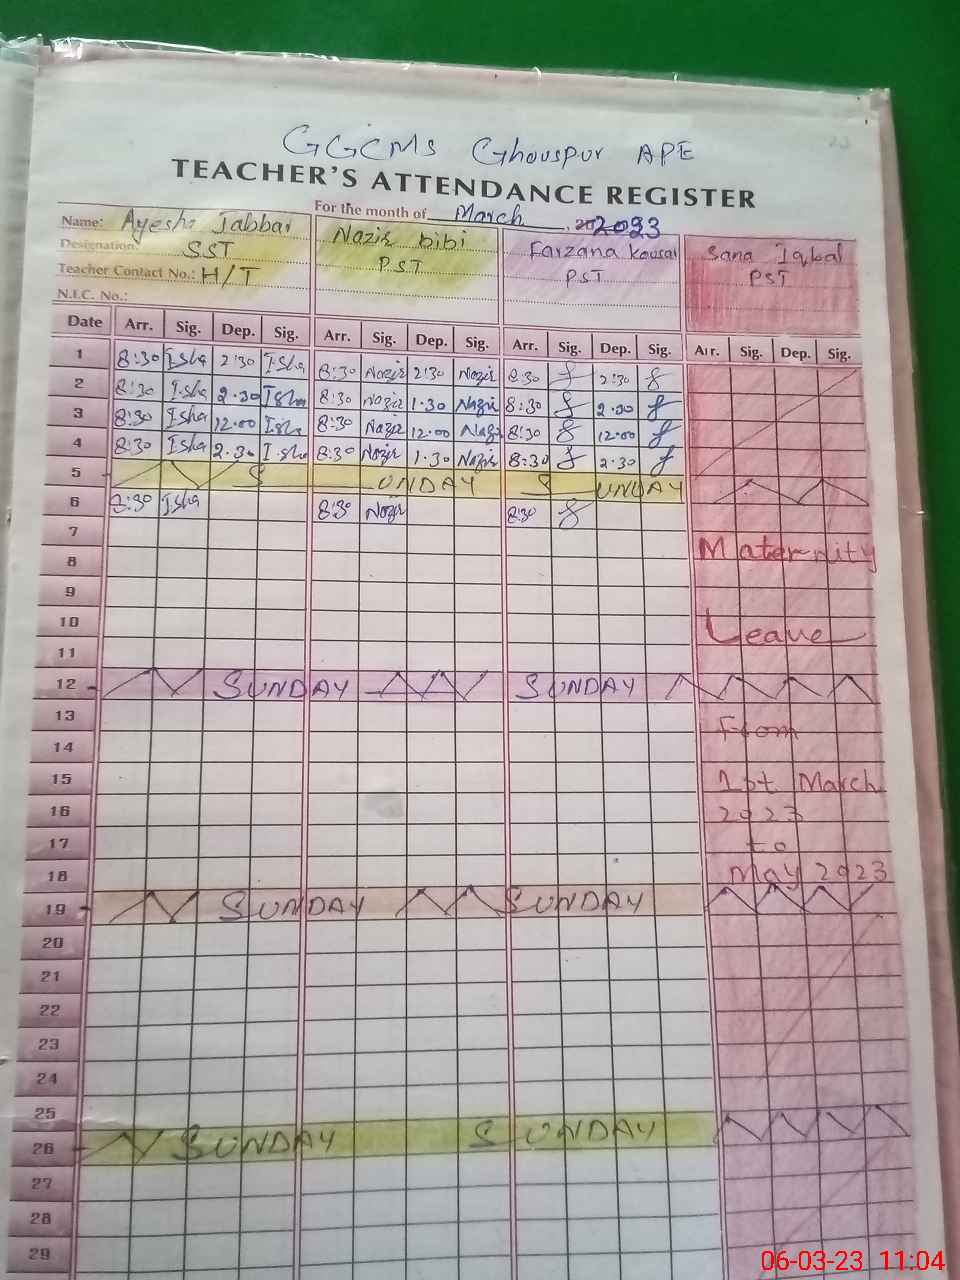 GGCMS Ghouspur APE
23
TEACHER'S ATTENDANCE REGISTER
For the month of March 2023
Name: Ayesha Jabbar Nazir bibi Farzana kousar Sana Iqbal
Designation: SST PST PST PST
Teacher Contact No.: H/T
N.I.C. No.:
Date Arr. Sig. Dep. Sig. Arr. Sig. Dep. Sig. Arr. Sig. Dep. Sig. Arr. Sig. Dep. Sig.
1 8:30 Isha 2:30 Isha 8:30 Nazir 2:30 Nazir 8:30 2:30
2 8:30 Isha 2.30 Isha 8:30 Nazir 1.30 Nazir 8:30 2.30
3 8:30 Isha 12.00 Isha 8:30 Nazir 12.00 Nazir 8:30 12.00
4 8:30 Isha 2.30 Isha 8:30 Nazir 1.30 Nazir 8:30 2.30
5 SUNDAY SUNDAY
6 8:30 Isha 8:30 Nazir 8:30
7
8 Maternity
9
10 Leave
11
12 SUNDAY SUNDAY
13
14 From
15 1st March
16 2023
17 to
18 May 2023
19 SUNDAY SUNDAY
20
21
22
23
24
25
26 SUNDAY SUNDAY
27
28
29
06-03-23 11:04